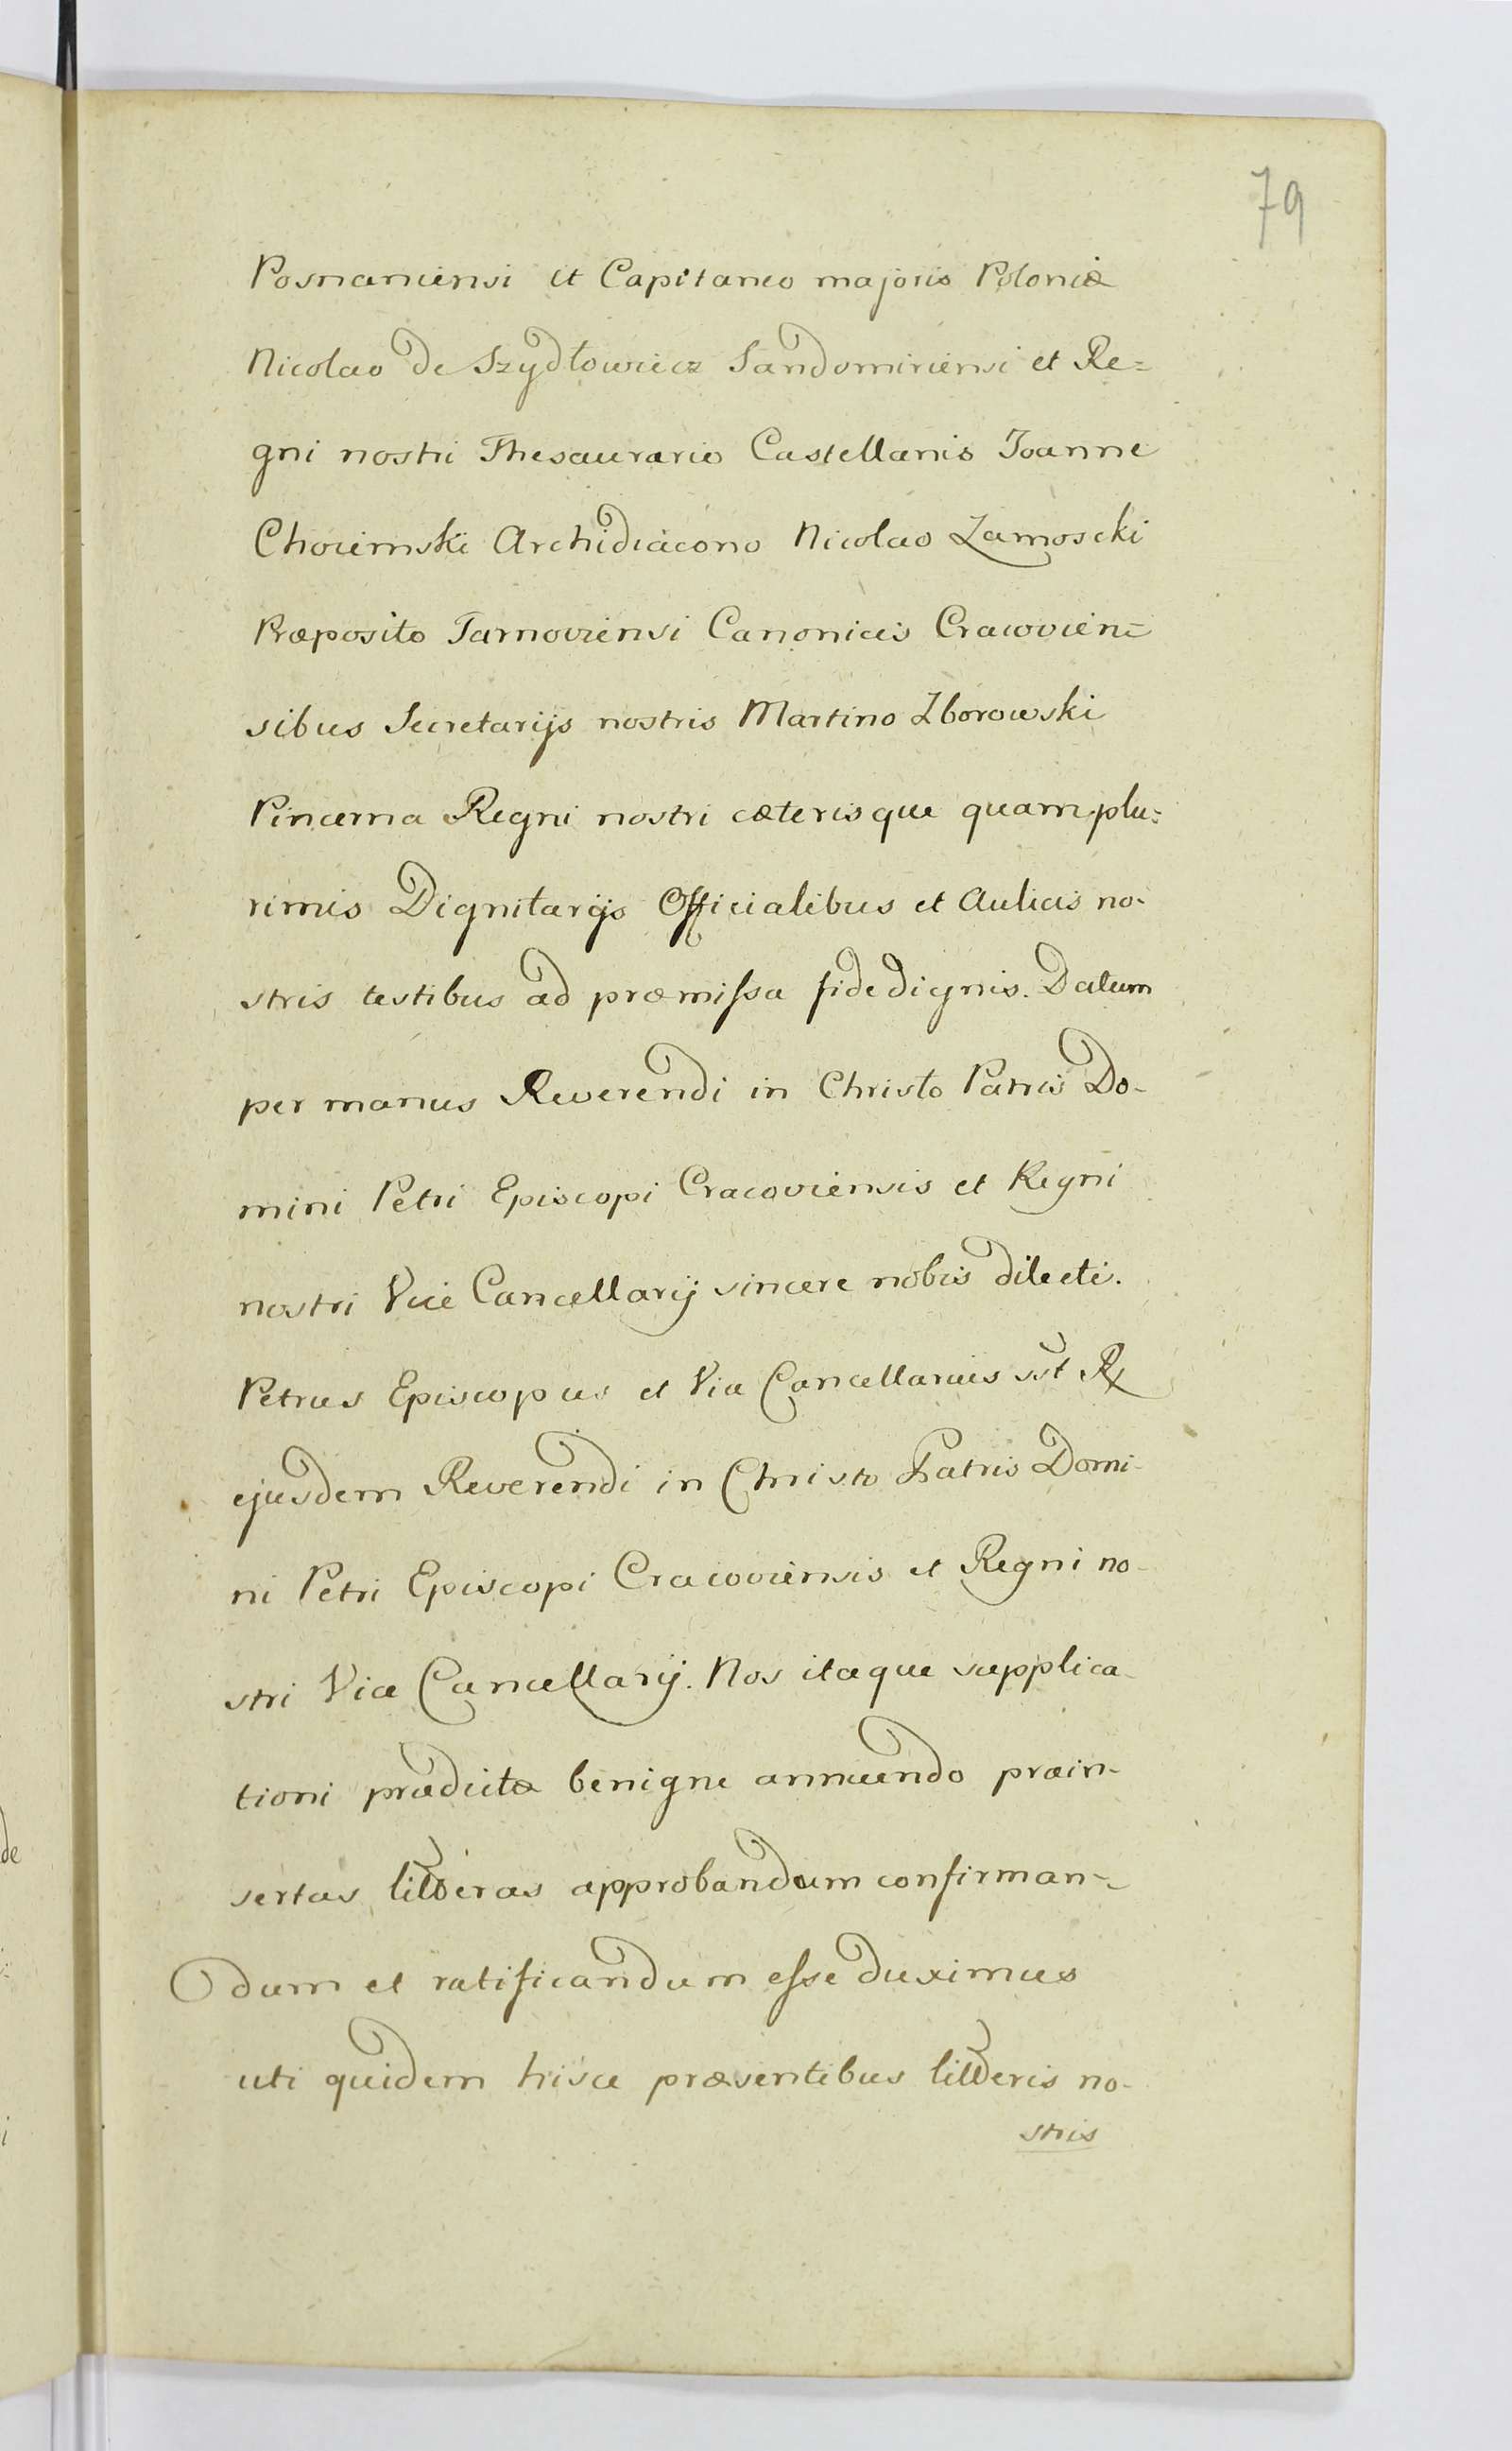 79
Posnaniensi et Capitaneo majoris Poloniæ
Nicolao de Szydłowiecz Sandomiriensi et Re=
gni nostri Thesaurario Castellanis Joanne
Choiemski Archidiacono Nicolao Zamoscki
Præposito Tarnoviensi Canonicis Cracovien=
sibus Secretarijs nostris Martino Zborowski
Pincerna Regni nostri cæterisque quamplu=
rimis Dignitarijs Officialibus et Aulicis no-
stris testibus ad præmiſsa fidedignis. Datum
per manus Reverendi in Christo Patris Do-
mini Petri Episcopi Cracoviensis et Regni
nostri Vice Cancellarij sincere nobis dilecti.
Petrus Episcopus et Vice Cancellarius sst
ejusdem Reverendi in Christo Patris Domi-
ni Petri Episcopi Cracoviensis et Regni no-
stri Vice Cancellarij. Nos itaque supplica-
tioni prædictæ benigne annuendo præin-
sertas litteras approbandum confirman-
dum et ratificandum eſse duximus
uti quidem hisce præsentibus litteris no-
stris
de
i